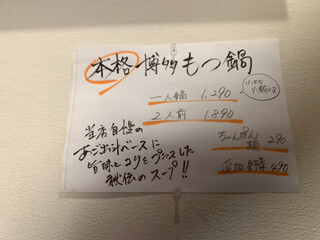 本格 博多もつ鍋
一人鍋 1,290
2人前 1,890
ちゃんぽん麺 290
追加野菜 490
当店自慢の
あご出汁ベースに
旨味とコクをプラスした
秘伝のスープ!!